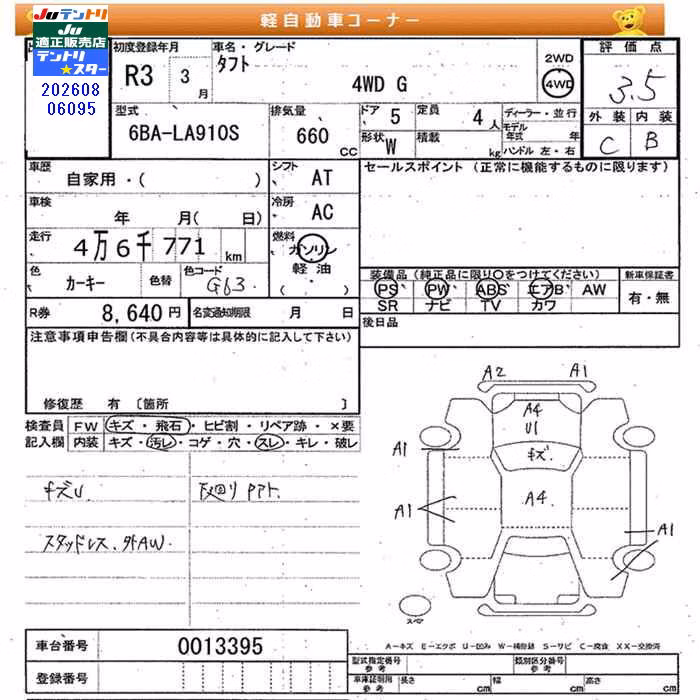 軽自動車コーナー
Juテントリ
Ju
適正販売店
テントリ
★スター
202608
06095
初度登録年月
R3 3月
車名・グレード
タフト
4WD G
2WD
4WD
評価点
3.5
外装 内装
C B
型式
6BA-LA910S
排気量
660 CC
ドア 5
定員 4人
形状 W
積載 kg
ディーラー・並行
モデル年式 年
ハンドル 左・右
車歴
自家用・( )
シフト AT
セールスポイント (正常に機能するものに限ります)
車検
年 月( 日)
冷房 AC
走行
4万6千771 km
燃料
ガソリン
軽油
( )
色
カーキー
色替
色コード
G63
装備品(純正品に限り○をつけてください)
PS PW ABS エアB AW
SR ナビ TV カワ
新車保証書
有・無
R券 8,640円
名変通知期限 月 日
後日品
注意事項申告欄(不具合内容等は具体的に記入して下さい)
修復歴 有 〔箇所 〕
検査員
記入欄
FW キズ・飛石・ヒビ割・リペア跡・×要
内装 キズ・汚レ・コゲ・穴・スレ・キレ・破レ
キズU
下回りサビト
スタッドレス、外AW.
A2 A1
A4
U1
キズ
A1
A4
A1
A1
スペア
A－キズ E－エクボ U－凹み W－補修跡 S－サビ C－腐食 XX－交換済
車台番号
0013395
登録番号
型式指定番号
参考
類別区分番号
参考
車庫証明用
参考
長さ cm
幅 cm
高さ cm